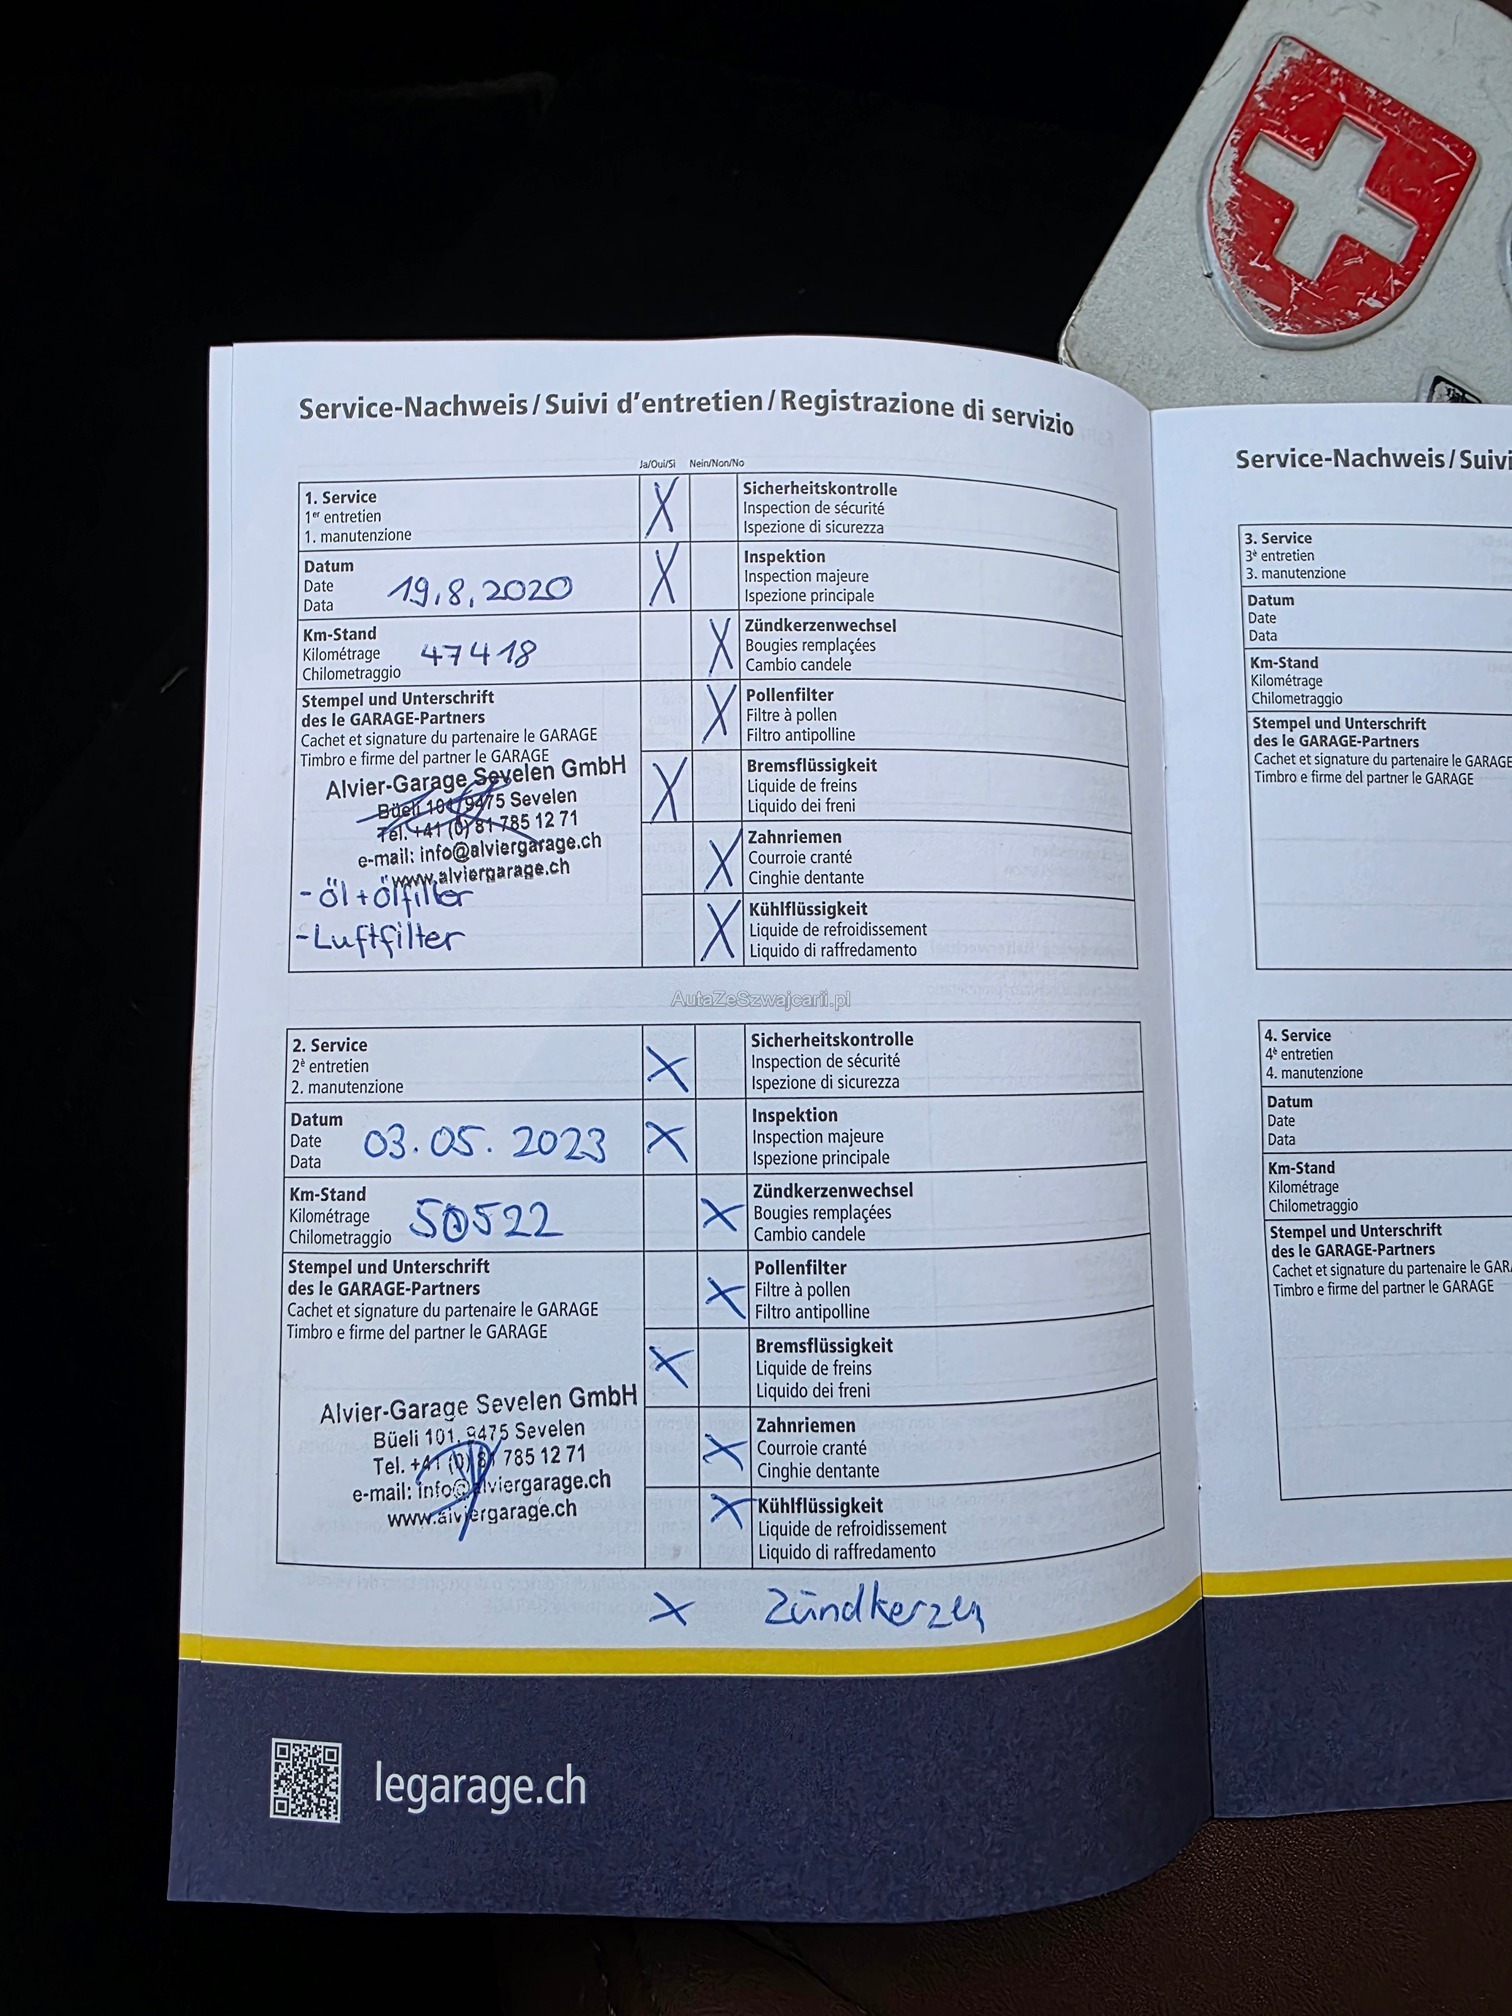 Service-Nachweis / Suivi d'entretien / Registrazione di servizio
Ja/Oui/Sì Nein/Non/No
1. Service
1er entretien
1. manutenzione
X
Sicherheitskontrolle
Inspection de sécurité
Ispezione di sicurezza
Datum
Date
Data
19.8.2020
X
Inspektion
Inspection majeure
Ispezione principale
Km-Stand
Kilométrage
Chilometraggio
47418
X
Zündkerzenwechsel
Bougies remplaçées
Cambio candele
Stempel und Unterschrift
des le GARAGE-Partners
Cachet et signature du partenaire le GARAGE
Timbro e firme del partner le GARAGE
Alvier-Garage Sevelen GmbH
Büeli 101, 9475 Sevelen
Tel. +41 (0) 81 785 12 71
e-mail: info@alviergarage.ch
www.alviergarage.ch
- Öl + Ölfilter
- Luftfilter
X
Pollenfilter
Filtre à pollen
Filtro antipolline
X
Bremsflüssigkeit
Liquide de freins
Liquido dei freni
X
Zahnriemen
Courroie cranté
Cinghie dentante
X
Kühlflüssigkeit
Liquide de refroidissement
Liquido di raffredamento
AutaZeSzwajcarii.pl
2. Service
2è entretien
2. manutenzione
X
Sicherheitskontrolle
Inspection de sécurité
Ispezione di sicurezza
Datum
Date
Data
03.05.2023
X
Inspektion
Inspection majeure
Ispezione principale
Km-Stand
Kilométrage
Chilometraggio
50522
X
Zündkerzenwechsel
Bougies remplaçées
Cambio candele
Stempel und Unterschrift
des le GARAGE-Partners
Cachet et signature du partenaire le GARAGE
Timbro e firme del partner le GARAGE
Alvier-Garage Sevelen GmbH
Büeli 101, 9475 Sevelen
Tel. +41 (0) 81 785 12 71
e-mail: info@alviergarage.ch
www.alviergarage.ch
X
Pollenfilter
Filtre à pollen
Filtro antipolline
X
Bremsflüssigkeit
Liquide de freins
Liquido dei freni
X
Zahnriemen
Courroie cranté
Cinghie dentante
X
Kühlflüssigkeit
Liquide de refroidissement
Liquido di raffredamento
X Zündkerzen
legarage.ch
Service-Nachweis / Suivi
3. Service
3è entretien
3. manutenzione
Datum
Date
Data
Km-Stand
Kilométrage
Chilometraggio
Stempel und Unterschrift
des le GARAGE-Partners
Cachet et signature du partenaire le GARAGE
Timbro e firme del partner le GARAGE
4. Service
4è entretien
4. manutenzione
Datum
Date
Data
Km-Stand
Kilométrage
Chilometraggio
Stempel und Unterschrift
des le GARAGE-Partners
Cachet et signature du partenaire le GAR
Timbro e firme del partner le GARAGE